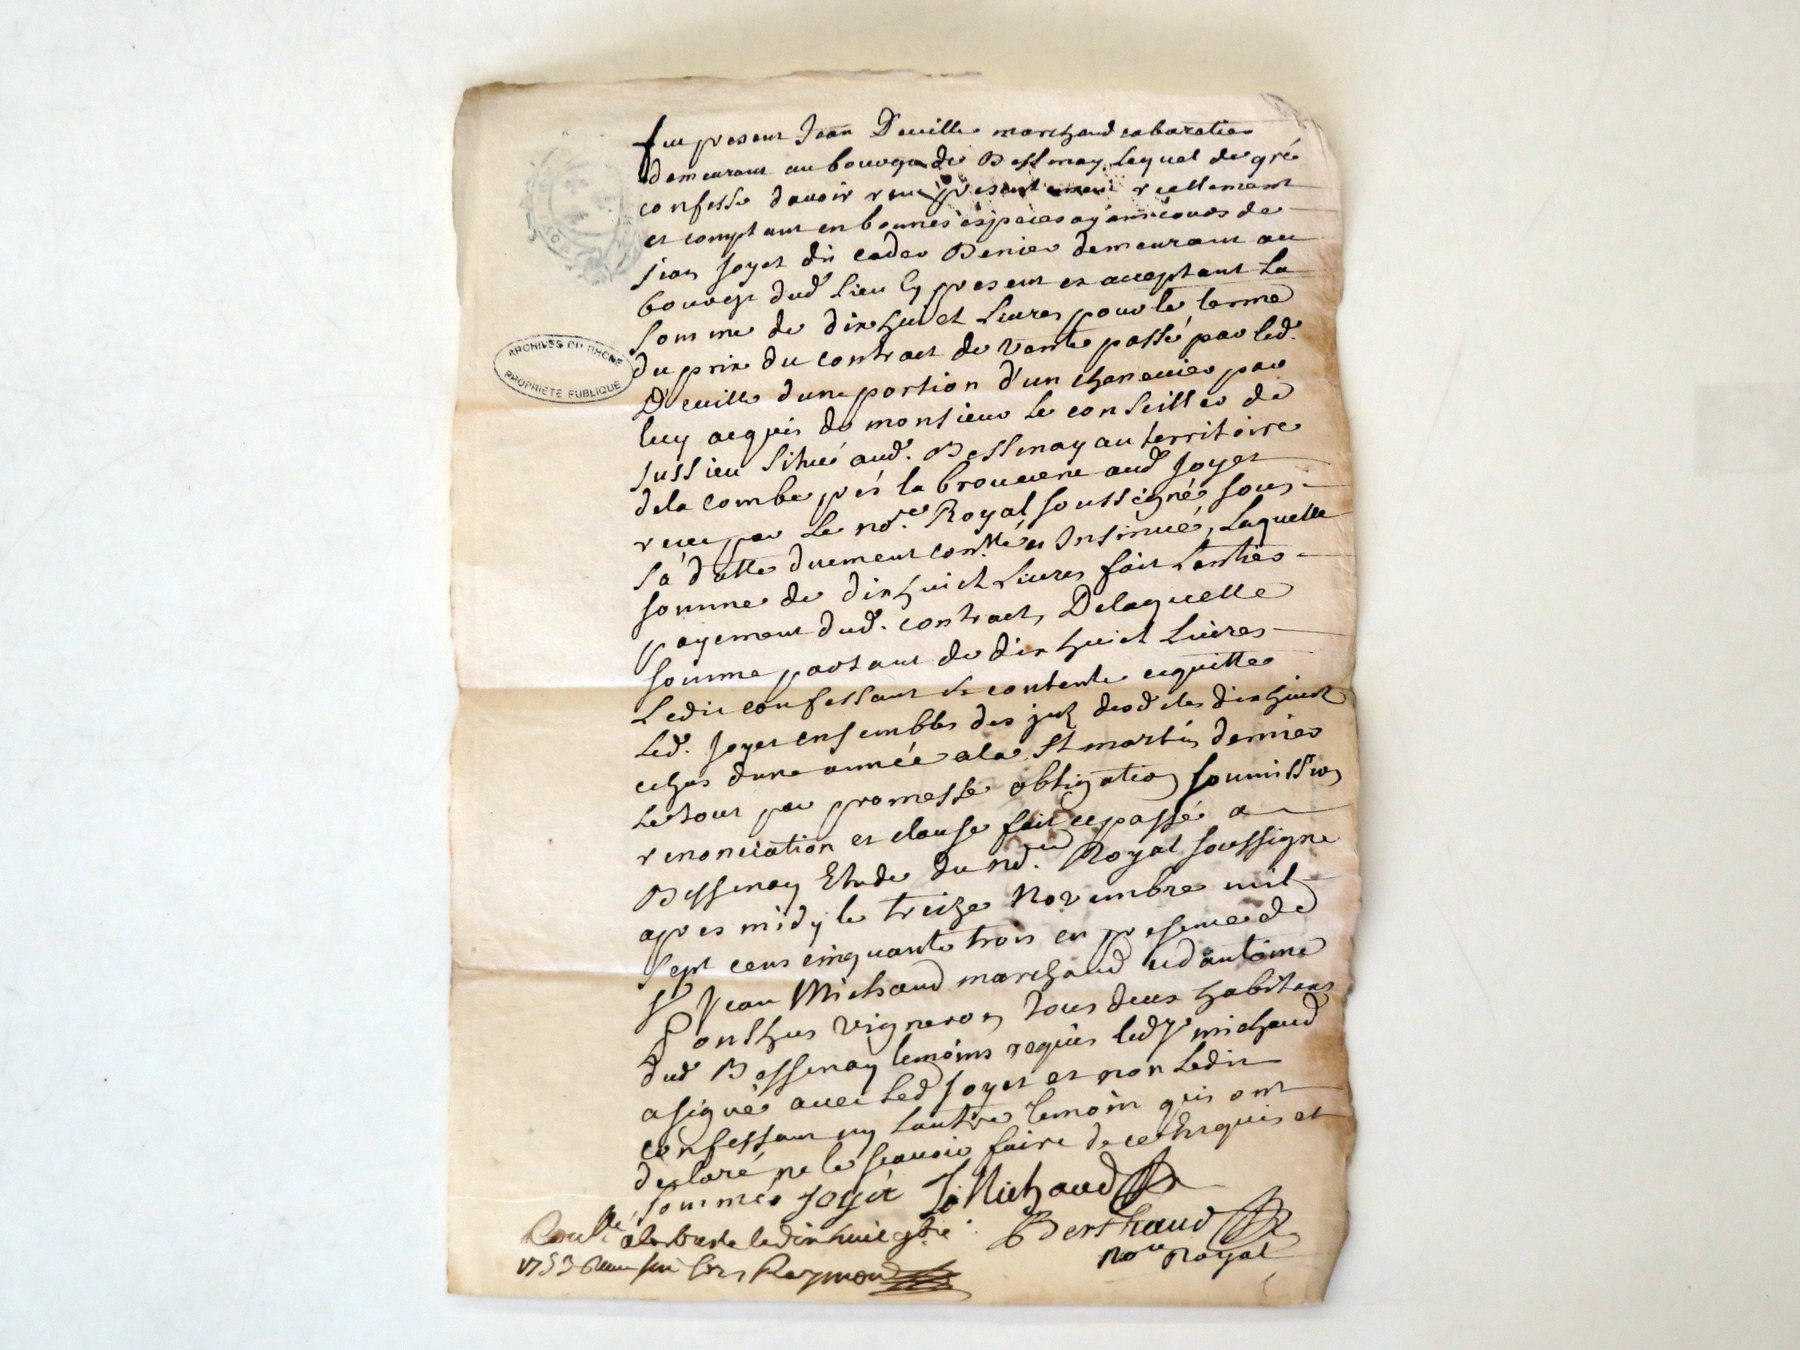 fut present Jean Deville marchand cabaratier
demeurant au bourg de Bessenay Lequel de gré
confesse davoir receu presentement reellement
et comptant en bonnes especes ayant cours de
Jean Joyet dit cadet Benier demeurant au
bourg dud. Lieu Cy present et acceptant La
Somme de dix huict Livres pour le terme
du prix du contract de Vente passé par led.
Deville dune portion d'un chenevier par
luy acquis de monsieur Le Conseiller de
Jussieu Situé aud. Bessenay au territoire
dela combe près la brouerie aud. Joyet
receu par Le nore. Royal soussigné sous
Sa datte duement conllé et Insinué, Laquelle
somme de dix huict Livres fait Lentier
payement dud. contract, Delaquelle
Somme partant de dix huict Livres
Ledit confessant se contente equitte
Led. Joyet ensembles des desdites dix huict
echus dune année a la St martin dernier
Le tout par promesse obligation soumission
renonciation et clause fait et passé a
Bessenay Etude du nore. Royal soussigné
apres midy le treize Novembre mil
Sept cens cinquante trois en presence de
Sr Jean Michaud marchand et d'antoine
Ponthus Vigneron tous deux habitans
dud. Bessenay temoins requis led. Sr michaud
a signé avec led. Joyet et non Ledit
confessant ny Lautre temoin qui ont
declaré ne le scavoir faire de ce Enquis et
Sommés Joyet J. Michaud
Conllé à Larbresle le dix huit 9bre Berthaud
1753 Reçu six sols Raymond Nore Royal
ARCHIVES DU RHONE
PROPRIETE PUBLIQUE